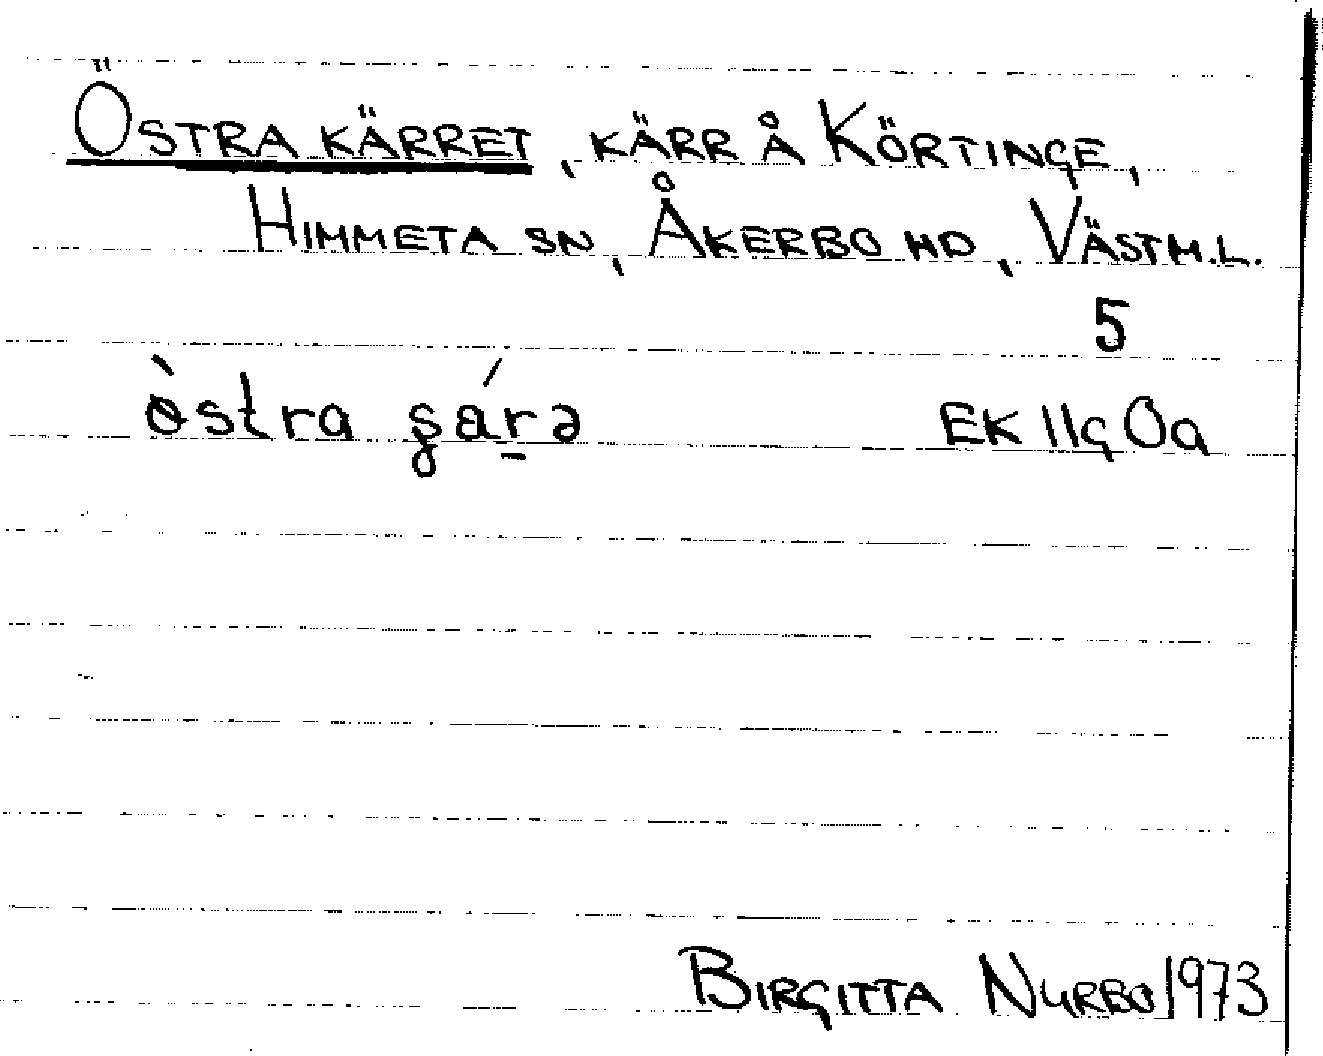 ÖSTRA KÄRRET, KÄRR Å KÖRTINGE,
HIMMETA SN, ÅKERBO HD, VÄSTM.L.
5
östra
EK 11g 0a
BIRGITTA NURBO 1973